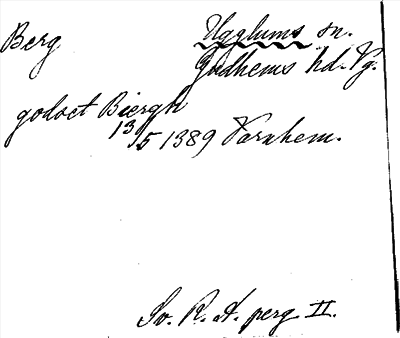 Berg
Ugglums sn.
Gudhems hd. Vg.
godset Biergh
13/5 1389 Varnhem.
Sv. R. A. perg. II.